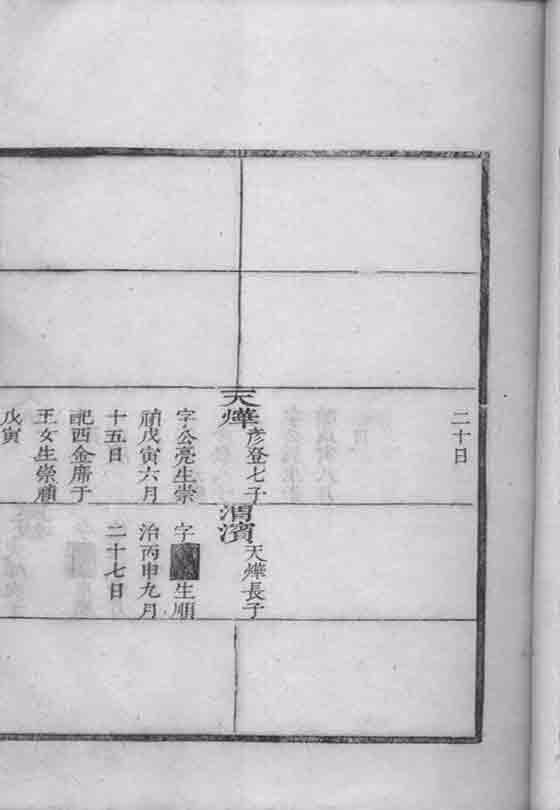 二十日
天燁
彥登七子
字公亮生崇
禎戊寅六月
十五日
配西金廓于
王女生崇禎
戊寅
渭濱
天燁長子
字 生順
治丙申九月
二十七日